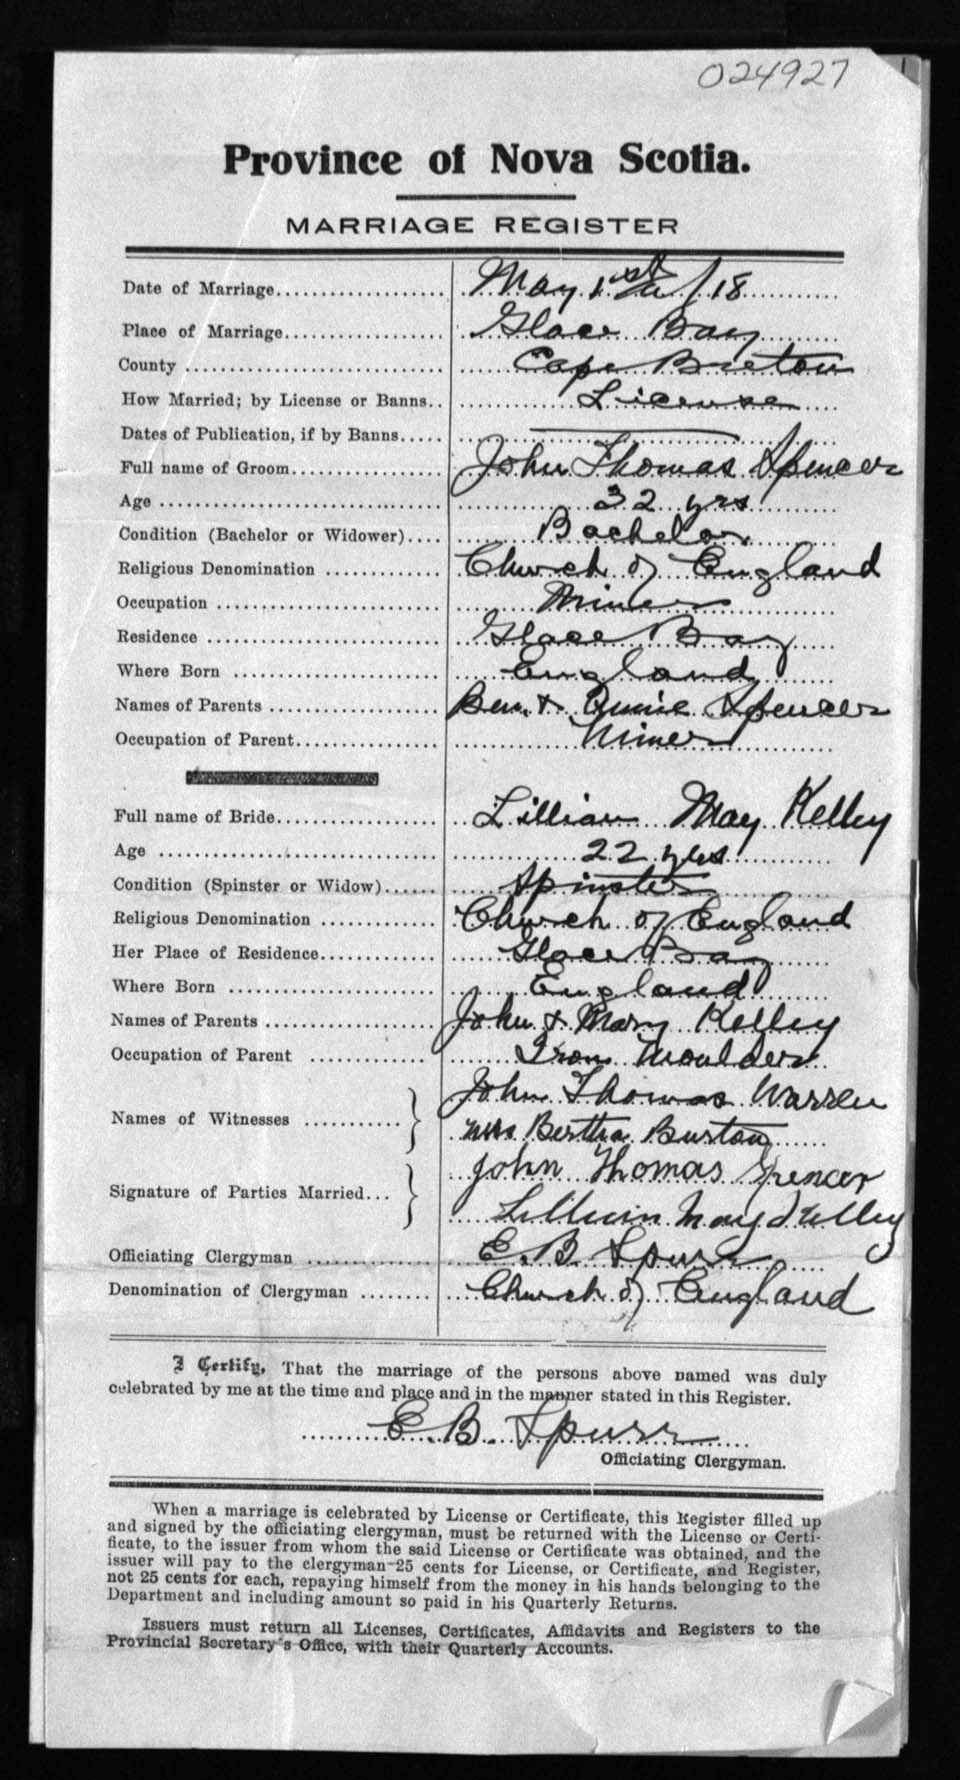 024927
Province of Nova Scotia.
MARRIAGE REGISTER
Date of Marriage.................... May 1st /18
Place of Marriage................... Glace Bay
County .............................. Cape Breton
How Married; by License or Banns.. License
Dates of Publication, if by Banns.....
Full name of Groom.................. John Thomas Spencer
Age ................................. 32 yrs
Condition (Bachelor or Widower).... Bachelor
Religious Denomination ............. Church of England
Occupation .......................... Miner
Residence ........................... Glace Bay
Where Born ........................ England
Names of Parents .................... Ben. & Annie Spencer
Occupation of Parent................. Miner
Full name of Bride................... Lillian May Kelley
Age ................................. 22 yrs
Condition (Spinster or Widow)...... Spinster
Religious Denomination ............. Church of England
Her Place of Residence.............. Glace Bay
Where Born ......................... England
Names of Parents .................... John & Mary Kelley
Occupation of Parent .............. Iron Moulder
John Thomas Warren
Names of Witnesses ...........
Mrs Bertha Burton
John Thomas Spencer
Signature of Parties Married...
Lillian May Kelley
Officiating Clergyman ................ E. B. Spurr
Denomination of Clergyman ........ Church of England
I Certify, That the marriage of the persons above named was duly
celebrated by me at the time and place and in the manner stated in this Register.
E. B. Spurr
Officiating Clergyman.
When a marriage is celebrated by License or Certificate, this Register filled up
and signed by the officiating clergyman, must be returned with the License or Certi-
ficate, to the issuer from whom the said License or Certificate was obtained, and the
issuer will pay to the clergyman 25 cents for License, or Certificate, and Register,
not 25 cents for each, repaying himself from the money in his hands belonging to the
Department and including amount so paid in his Quarterly Returns.
Issuers must return all Licenses, Certificates, Affidavits and Registers to the
Provincial Secretary's Office, with their Quarterly Accounts.